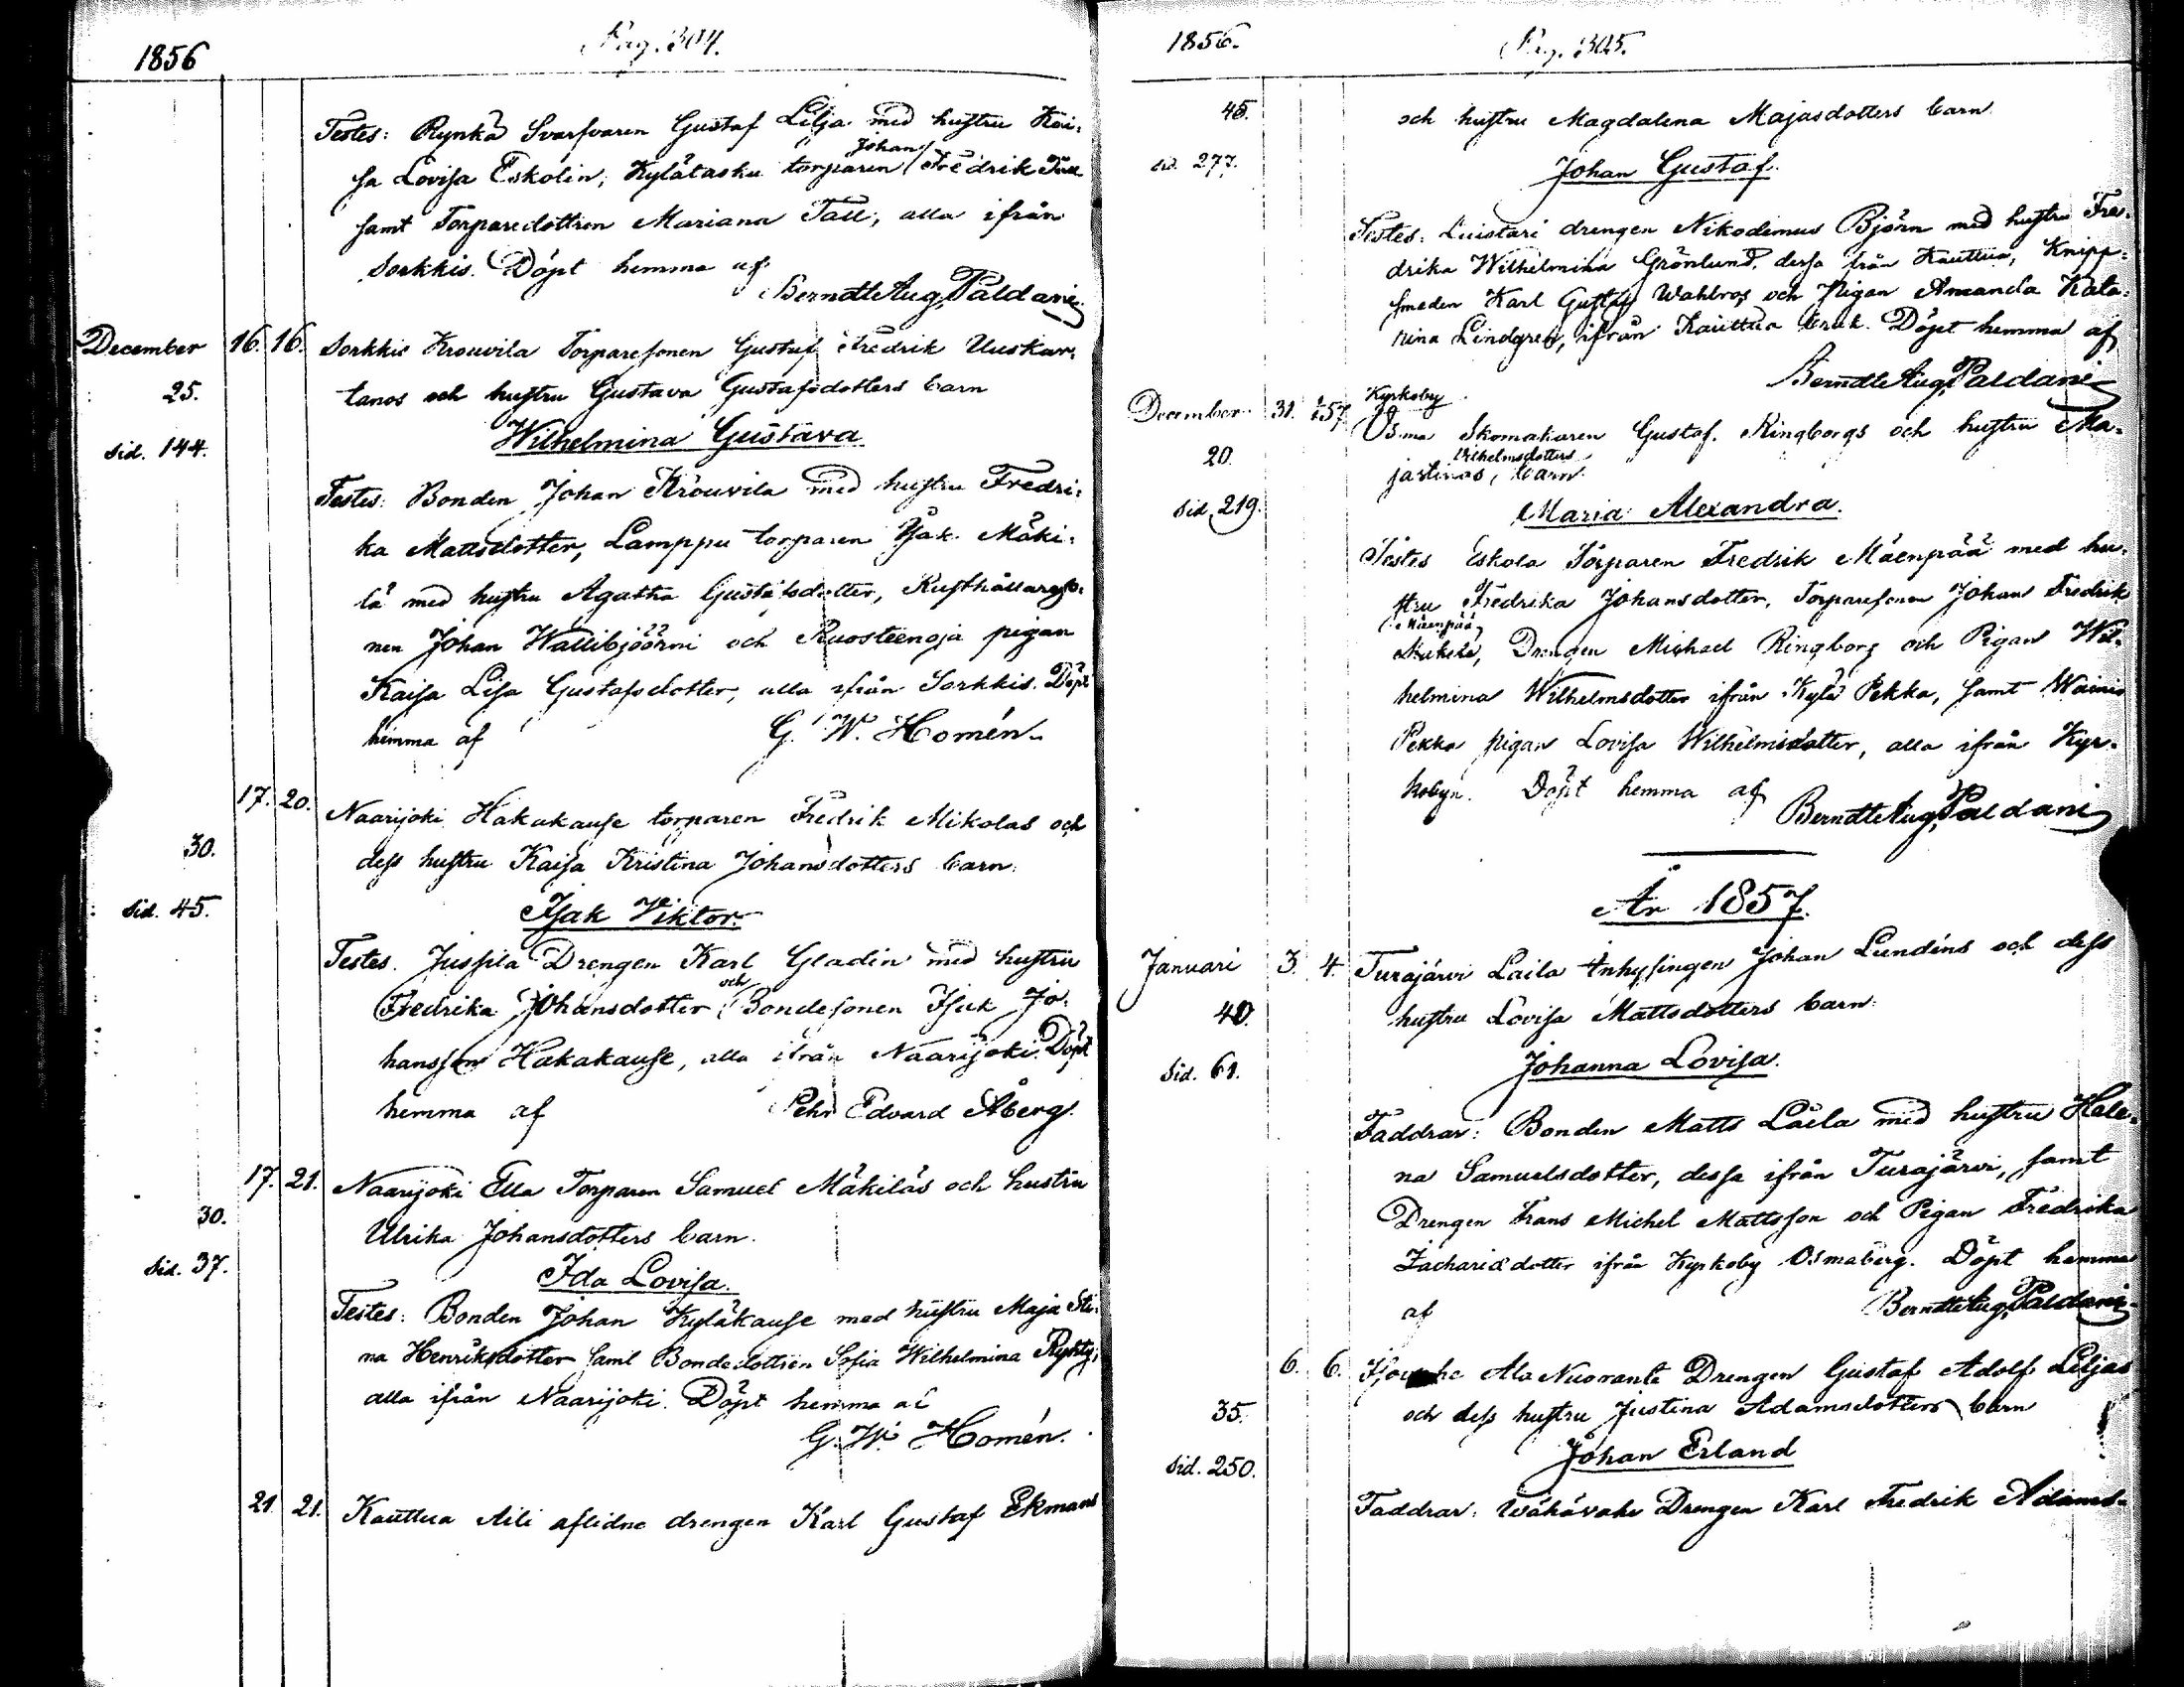 1856
Pag. 304.
Testes: Rynkä Svarfvaren Gustaf Lilja med hustru Kai-
sa Lovisa Eskolin, Kylätasku torparen Johan Fredrik Tall
samt Torparedottren Mariana Tall, alla ifrån
Sorkkis. Döpt hemma af
Berndt Aug. Paldani
December 16. 16. Sorkkis Krouvila Torparesonen Gustaf Fredrik Uuskar-
25. tanos och hustru Gustava Gustafsdotters barn
Sid. 144. Wilhelmina Gustava
Testes: Bonden Johan Krouvila med hustru Fredri-
ka Mattsdotter, Lamppu torparen Isak Mäki-
lä med hustru Agatha Gustafsdotter, Rusthållareso-
nen Johan Wällibjöörni och Ruosteenoja pigan
Kaisa Lisa Gustafsdotter, alla ifrån Sorkkis. Döpt
hemma af G. W. Homén
17. 20. Naarijoki Hakakause torparen Fredrik Mikolas och
30. dess hustru Kaisa Kristina Johansdotters barn
Sid. 45. Isak Viktor
Testes. Juspila Drengen Karl Gladin med hustru
Fredrika Johansdotter och Bondesonen Isak Jo-
hansson Hakakause, alla ifrån Naarijoki. Döpt
hemma af Pehr Edvard Åberg
17. 21. Naarijoki Ella Torparen Samuel Mäkiläs och hustru
30. Ulrika Johansdotters barn.
Sid. 37. Ida Lovisa.
Testes: Bonden Johan Kyläkause med hustru Maja Sti-
na Henriksdotter samt Bondedottren Sofia Wilhelmina Ryhty,
alla ifrån Naarijoki. Döpt hemma af
G. W. Homén.
21. 21. Kauttua Aili aflidne drengen Karl Gustaf Ekmans
1856.
Pag. 305.
45. och hustru Magdalena Majasdotters barn
Sid. 277. Johan Gustaf.
Testes: Luistari drengen Nikodemus Björn med hustru Fre-
drika Wilhelmina Grönlund, dessa från Kauttua, Knipp-
smeden Karl Gustaf Wahlros och Pigan Amanda Kata-
rina Lindgren, ifrån Kauttua bruk. Döpt hemma af
Berndt Aug. Paldani
Kyrkoby
December 31. Osma Skomakaren Gustaf Ringborgs och hustru Ma-
20. jastinas, Wilhelmsdotters barn
Sid. 219. Maria Alexandra.
Testes Eskola Torparen Fredrik Mäenpää med hu-
stru Fredrika Johansdotter, Torparesonen Johan Fredrik
Mäenpää
Drengen Michael Ringborg och Pigan Wil-
helmina Wilhelmsdotter ifrån Kylä Pekka, samt Wainio
Pekka pigan Lovisa Wilhelmsdotter, alla ifrån Kyr-
kobyn. Döpt hemma af Berndt Aug. Paldani
År 1857.
Januari 3. 4. Turajärvi Laila Inhysingen Johan Lundins och dess
40. hustru Lovisa Mattsdotters barn
Sid. 61. Johanna Lovisa.
Faddrar: Bonden Matts Laila med hustru Hele-
na Samuelsdotter, dessa ifrån Turajärvi, samt
Drengen Frans Michel Mattsson och Pigan Fredrika
Zacharisdotter ifrån Kyrkoby Osmaberg. Döpt hemma
af Berndt Aug. Paldani
6. 6. Ala Nuoranta Drengen Gustaf Adolf Liljas
35. och dess hustru Justina Adamsdotters barn
Sid. 250. Johan Erland
Faddrar: Wähävahe Drengen Karl Fredrik Adams-